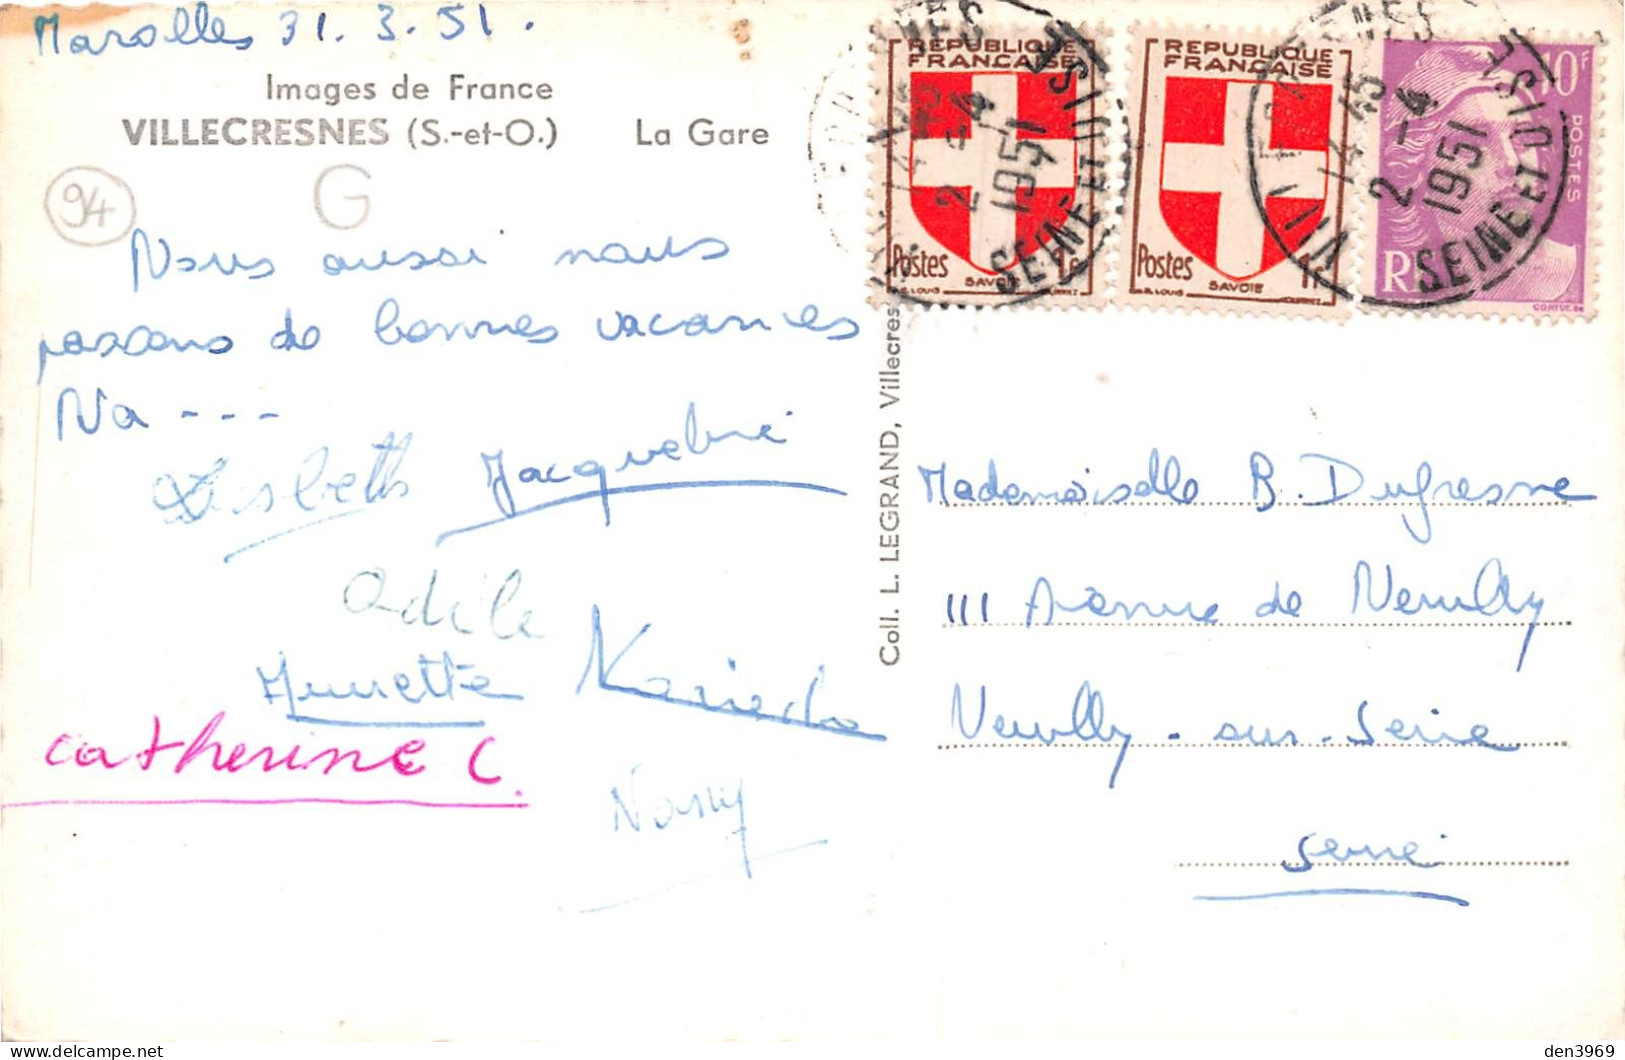 Marolles 31.3.51.
Images de France
VILLECRESNES (S.-et-O.) La Gare
94 G
Nous aussi nous
passons de bonnes vacances
Na ---
Lisbeth Jacqueline
Odile
Annette
Catherine C.
Nany
Coll. L. LEGRAND, Villecresnes
REPUBLIQUE
FRANÇAISE
Postes 1F
SAVOIE
REPUBLIQUE
FRANÇAISE
Postes 1F
SAVOIE
10F
POSTES
RF
14 45
2 -4
1951
SEINE ET OISE
14 45
2 -4
1951
SEINE ET OISE
Mademoiselle B. Dufresne
111 Avenue de Neuilly
Neuilly-sur-Seine
Seine
den3969